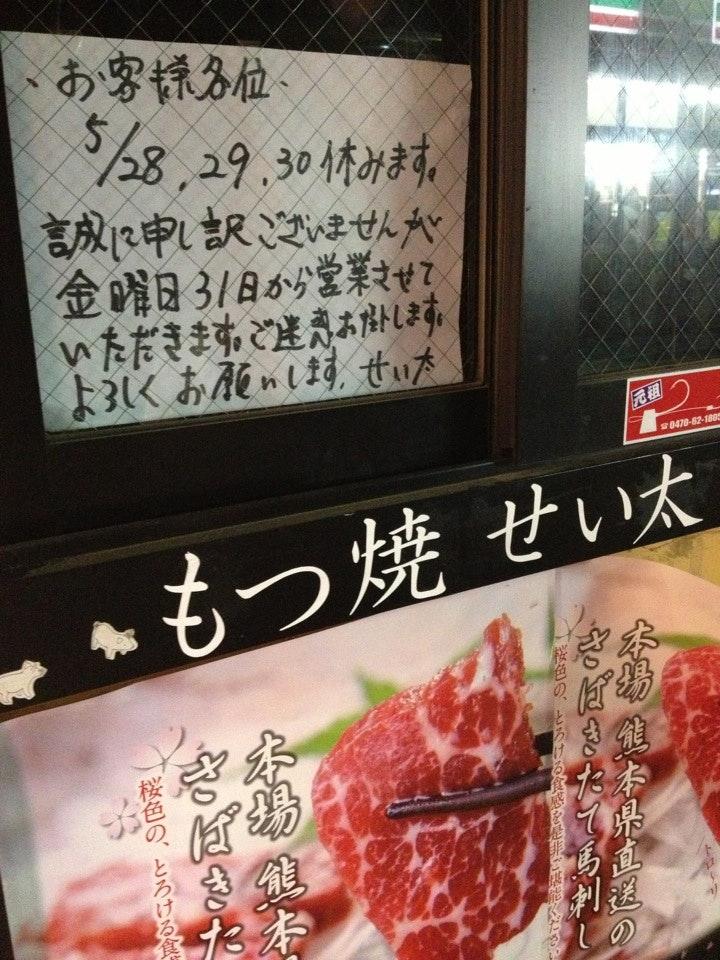 お客様各位
5/28、29、30休みます。
誠に申し訳ございませんが
金曜日31日から営業させて
いただきます。ご迷惑お掛けします。
よろしくお願いします。せい太
元祖
☎0470-62-180
もつ焼 せい太
本場 熊本県直送の
さばきたて馬刺し
桜色の、とろける食感を是非ご堪能ください
本場 熊本
さばきた
桜色の、とろける食感